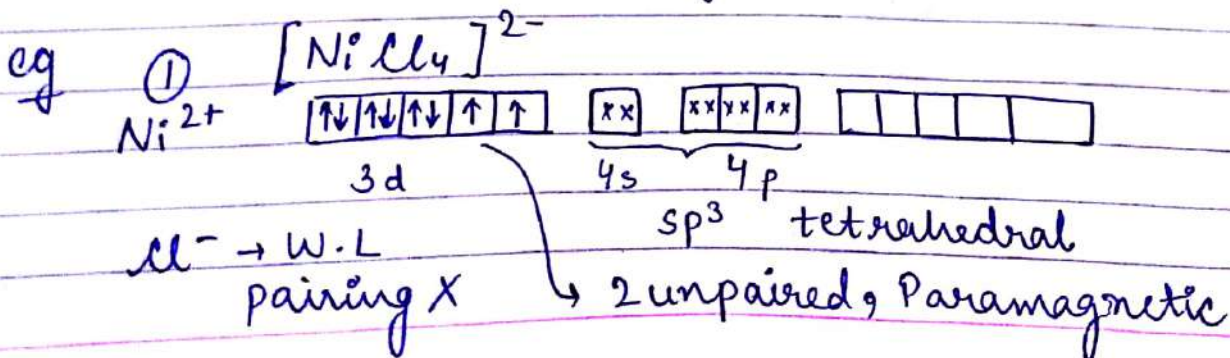 eg ① [NiCl₄]²⁻
Ni²⁺ ↑↓ ↑↓ ↑↓ ↑ ↑ xx xx xx xx
3d 4s 4p
sp³ tetrahedral
Cl⁻ → W.L
pairing X → 2 unpaired, Paramagnetic